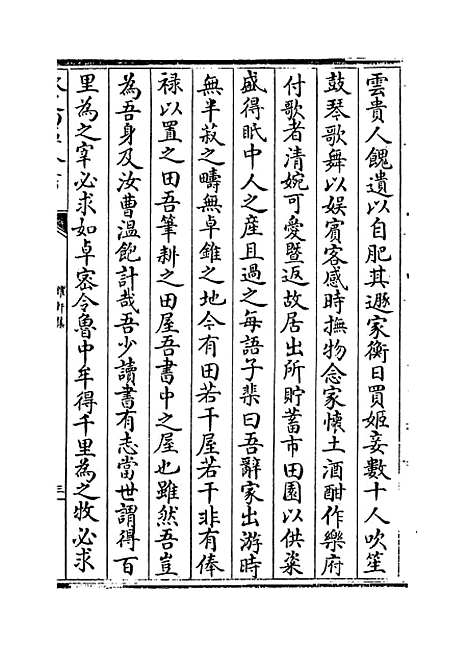 雲貴人餽遺以自肥其遯家衡日買姬妾數十人吹笙
鼓琴歌舞以娱賓客感時撫物念家懐土酒酣作樂府
付歌者清婉可愛暨返故居出所貯蓄市田園以供粢
盛得眂中人之産且過之每語子棐曰吾辭家出游時
無半菽之疇無卓錐之地今有田若干屋若干非有俸
禄以置之田吾筆耕之田屋吾書中之屋也雖然吾豈
為吾身及汝曹温飽計哉吾少讀書有志當世謂得百
里為之宰必求如卓密令魯中牟得千里為之牧必求